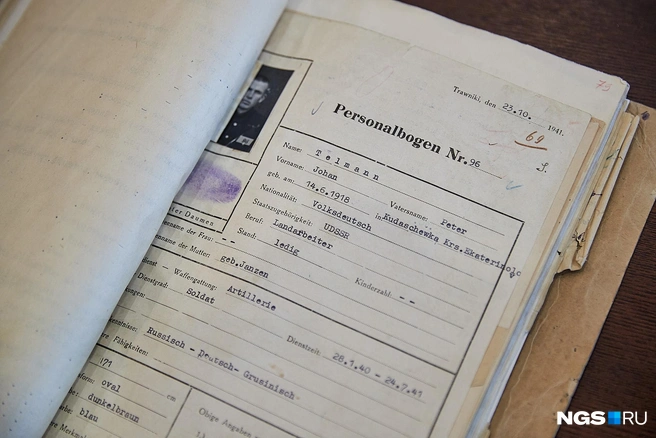 73
Trawniki, den 23.10. 1941.
69
Personalbogen Nr. 96
Name: Telmann
Vorname: Johan Vatersname: Peter
geb. am: 14.6.1918 in Kudaschewka Krs.Ekaterinolo
Nationalität: Volksdeutsch
Staatszugehörigkeit: UDSSR
Beruf: Landarbeiter
Stand: ledig Kinderzahl: --
name der Frau: --
name der Mutter: geb.Janzen
Daumen
dienst - Waffengattung: Artillerie
Dienstgrad: Soldat Dienstzeit: 28.1.40 - 24.7.41
Russisch - Deutsch - Grusinisch
Fähigkeiten:
171 cm
oval
dunkelbraun
blau
Obige Angaben
NGS RU